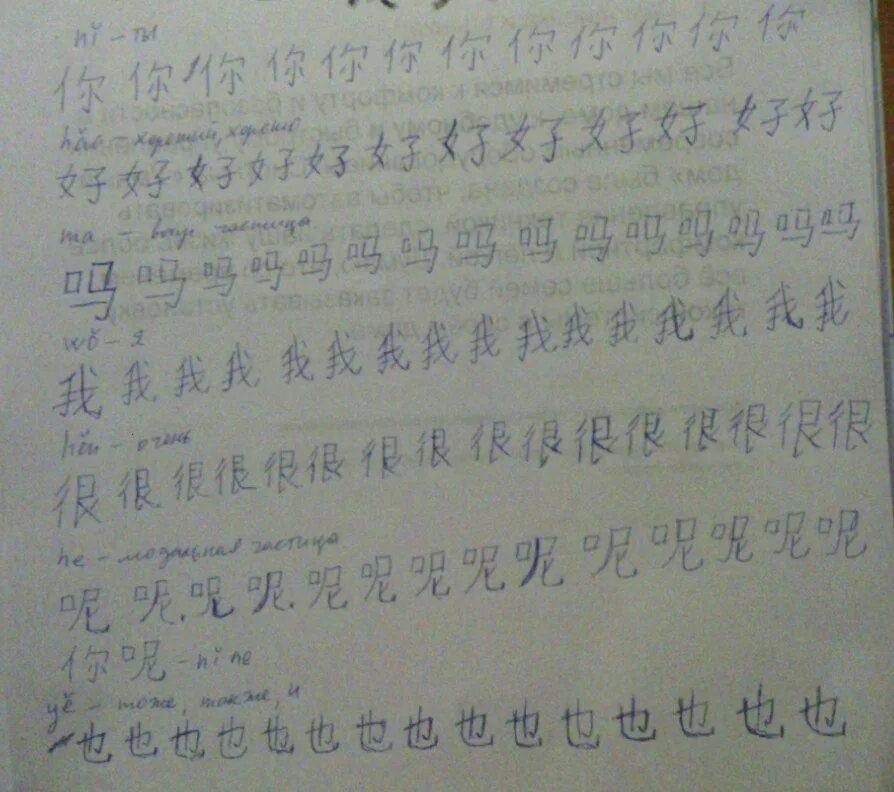 nǐ – ты
你 你 你 你 你 你 你 你 你 你 你 你
hǎo – хороший, хорошо
好 好 好 好 好 好 好 好 好 好 好 好
ma – вопр. частица
吗 吗 吗 吗 吗 吗 吗 吗 吗 吗 吗 吗 吗 吗 吗
wǒ – я
我 我 我 我 我 我 我 我 我 我 我 我 我 我 我 我
hěn – очень
很 很 很 很 很 很 很 很 很 很 很 很 很 很 很 很
ne – модальная частица
呢 呢. 呢 呢. 呢 呢 呢 呢 呢 呢 呢 呢 呢 呢
你 呢 – nǐ ne
yě – тоже, также, и
也 也 也 也 也 也 也 也 也 也 也 也 也 也 也